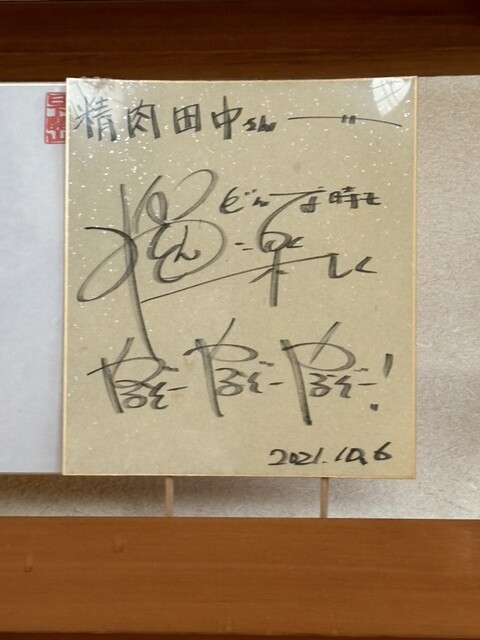 精肉田中さん江
どんな時も
楽しく
やるぞー やるぞー やるぞー!
2021.10.6